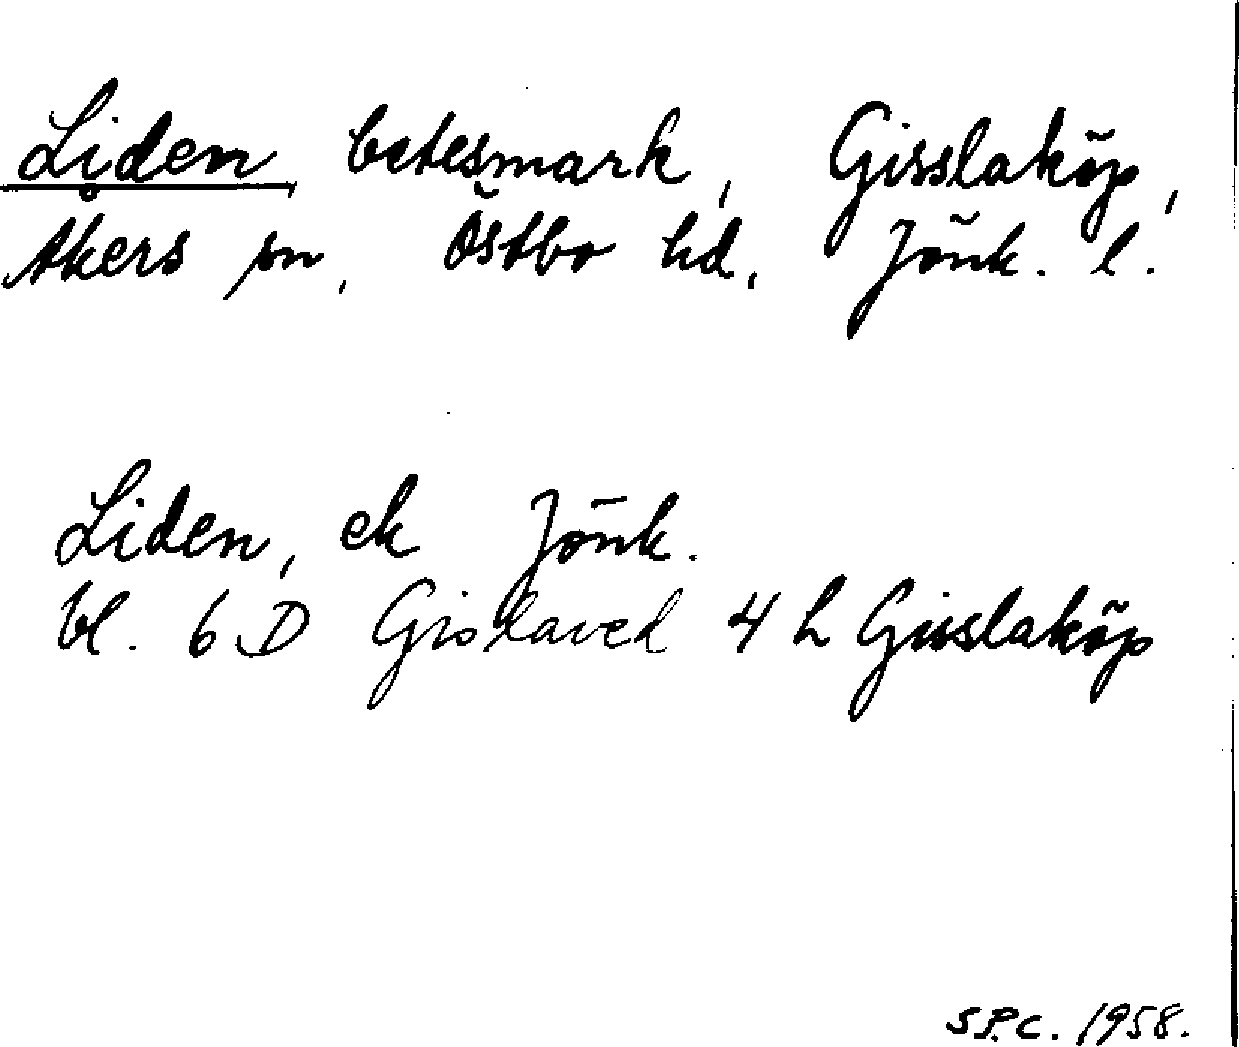 Liden, betesmark, Gisslaköp,
Åkers sn, Östbo hd, Jönk. l.
Liden, ek Jönk.
bl. 6 D Gislaved 4 h Gisslaköp
S.P.C. 1958.